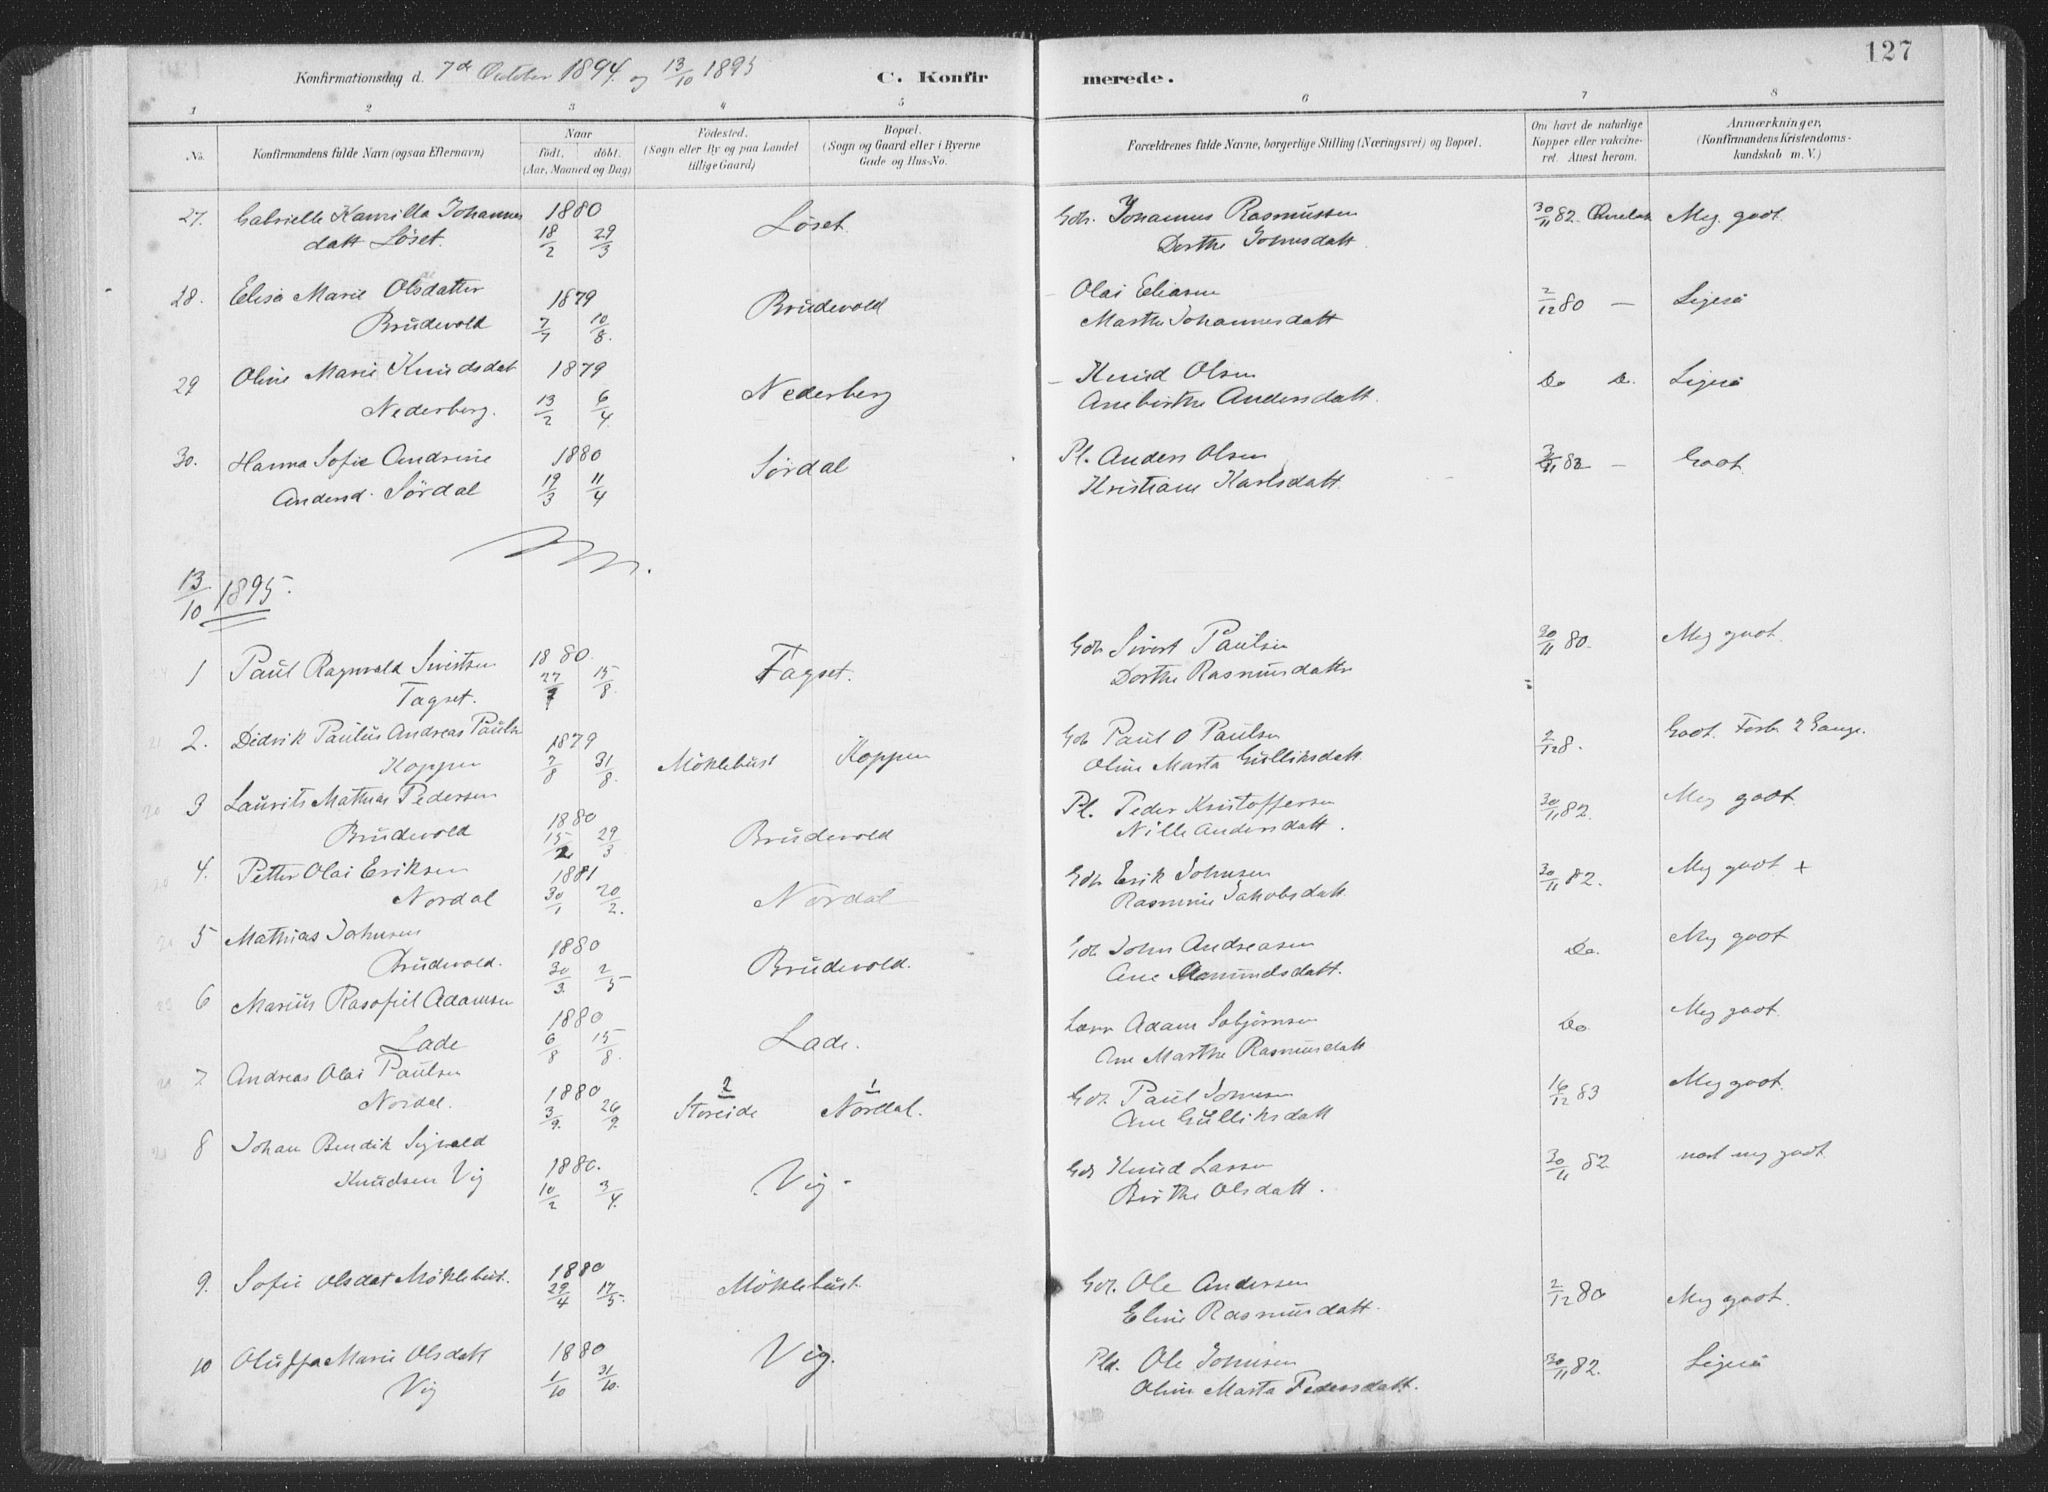 127
Konfirmationsdag d. 7de October 1894. og 13/10 1895
C. Konfirmerede.
1 2 3 4 5 6 7 8
No.
Konfirmandens fulde Navn (ogsaa Efternavn)
Naar
født. døbt.
(Aar, Maaned og Dag)
Fødested.
(Sogn eller By og paa Landet
tillige Gaard)
Bopæl.
(Sogn og Gaard eller i Byerne
Gade og Hus-No.
Forældrenes fulde Navne, borgerlige Stilling (Næringsvei) og Bopæl.
Om havt de naturlige
Kopper eller vakcine-
ret. Attest herom.
Anmærkninger,
(Konfirmandens Kristendoms-
kundskab m. V.)
27. Gabrielle Kamilla Johannes 1880 Løset. Gdr. Johannes Rasmussen 30/11 82. Meg. godt.
datt Løset. 18/2 29/3 Dorthe Johnsdatt.
28. Elisa Marie Olsdatter 1879 Brudevold Olai Eliasen 2/12 80 — Ligeså
Brudevold 7/7 10/8. Marthe Johannesdatt
29 Oline Marie Knudsdat 1879 Nederberg - Knud Olsen Do D. Ligeså
Nederberg. 13/2 6/4. Ane birthe Andersdatt.
30. Hanna Sofie Andrine 1880 Sørdal Pl. Anders Olsen — Godt.
Andersd. Sørdal 19/3 11/4 Kristiane Karlsdatt
13/10 1895.
1 Paul Ragnvald Sivertsen 1880. Tagset. Gdr Sivert Paulsen 30/11 80. Meg godt.
Tagset. 27/7 15/8. Dorthe Rasmusdatter
2. Didrik Paulus Andreas Pauls 1879 Møklebust Koppen Gdr Paul O Paulsen 2/12 8. Godt. Forb. 2 Gange.
Koppen 7/8 31/8. Oline Marta Gulliksdatt.
3 Laurits Mathias Pedersen 1880 Brudevold Pl. Peder Kristoffersen 30/11 82. Meg godt.
Brudevold 15/2 29/3 Nille Andersdatt.
4. Petter Olai Eriksen 1881 Nordal Gdr Erik Johnsen 30/11 82. Meg godt +
Nordal 30/1 20/2. Rasmine Jakobsdatt
5 Mathias Johnsen 1880 Brudevold. Gdr. John Andreasen Do. Meg godt
Brudevold. 30/3. 2/5 Ane Amundsdatt.
6 Marius Rasofiel Adamsen 1880 Lade. Lærer Adam Sobjørnsen Do. Meg godt.
Lade 6/8 15/8. Ane Marthe Rasmusdatt
7. Andreas Olai Paulsen 1880 2 Storeide 1 Nordal. Gdr. Paul Johnsen 16/12 83 Meg godt.
Nordal. 3/9. 26/9. Ane Gulliksdatt
8 Johan Bendik Sigvald 1880. Vig. Gdr Knud Lassen 30/11 82. næst meg godt
Knudsen Vig 10/2 3/4. Birthe Olsdatt.
9. Sofie Olsdat Møklebust. 1880 Møklebust. Gdr. Ole Andersen 2/12 80 Meg godt.
22/4 17/5. Eline Rasmusdatt.
10 Oluffa Marie Olsdatt 1880 Vig. Pld. Ole Johnsen 30/11 82. Ligeså
Vig 1/10 31/10. Oline Marta Pedersdatt.